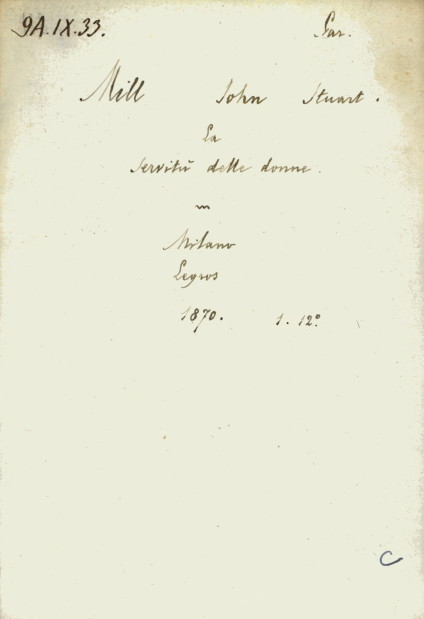 9A.IX.33. Par.
Mill John Stuart.
La
servitù delle donne.
Milano
Legros
1870. 1. 12º.
C